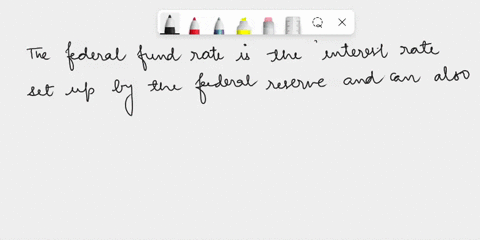 The federal fund rate is the interest rate
set up by the federal reserve and can also